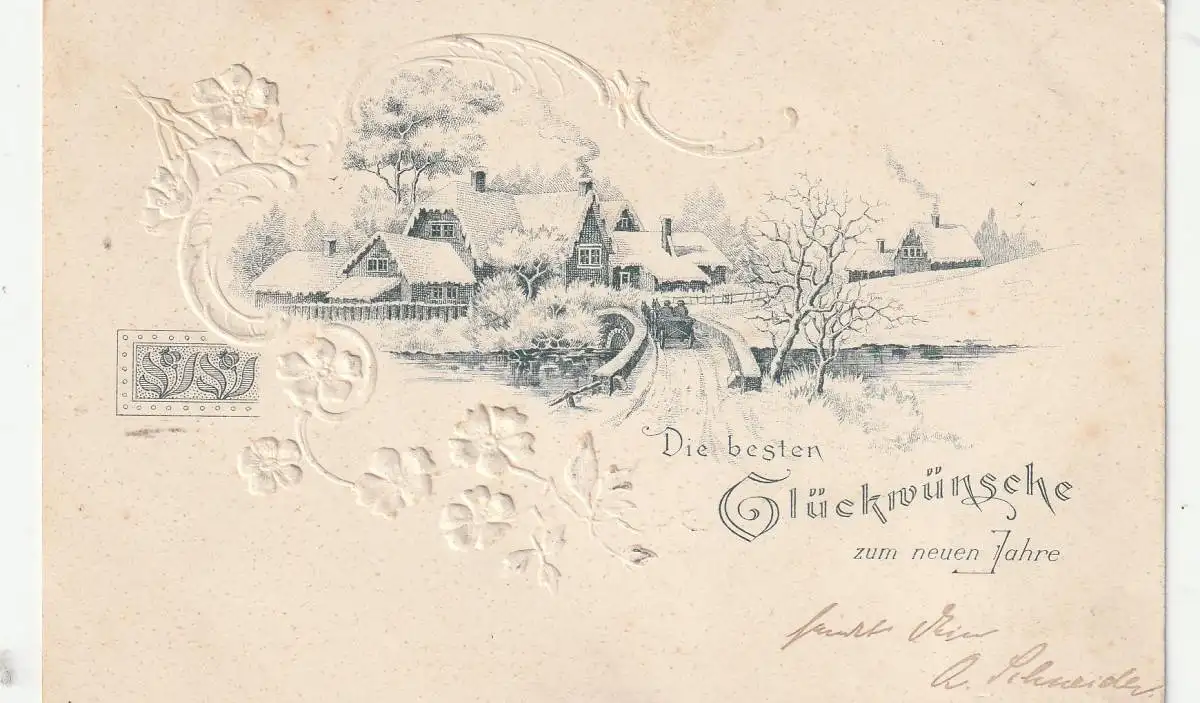 Die besten
Glückwünsche
zum neuen Jahre
sendet Dein
A. Schneider.